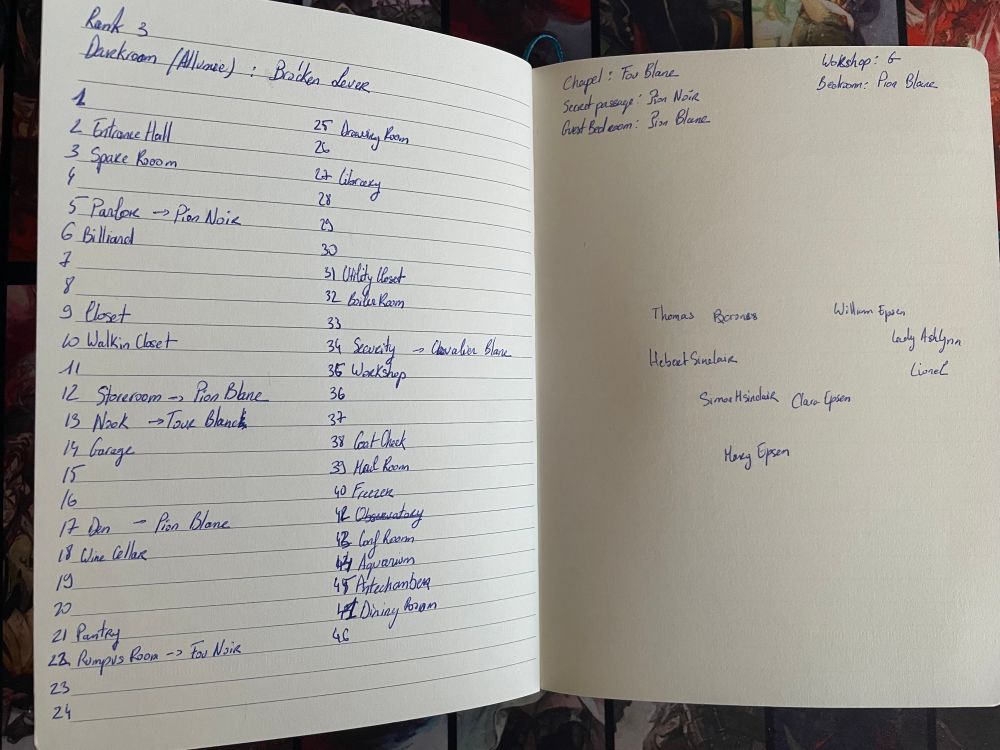 Rank 3
Darekroom (Allumée) : Bricken Lever
1
2 Entrance Hall
3 Spare Room
4
5 Parlor -> Pion Noir
6 Billiard
7
8
9 Closet
10 Walkin Closet
11
12 Storeroom -> Pion Blanc
13 Nook -> Tour Blanche
14 Garage
15
16
17 Den -> Pion Blanc
18 Wine Cellar
19
20
21 Pantry
22 Rumpus Room -> Fou Noir
23
24
25 Drawing Room
26
27 Library
28
29
30
31 Utility Closet
32 Boiler Room
33
34 Security -> Chevalier Blanc
35 Workshop
36
37
38 Coat Check
39 Mail Room
40 Freezer
42 Observatory
43 Conf Room
44 Aquarium
45 Antechamber
41 Dining Room
46
Chapel : Fou Blanc
Secret passage : Pion Noir
Guest Bedroom : Pion Blanc
Workshop : G
Bedroom : Pion Blanc
Thomas
William Epsen
Lady Ashlynn
Hebert Sinclair
Lionel
Simon H Sinclair
Clara Epsen
Mary Epsen